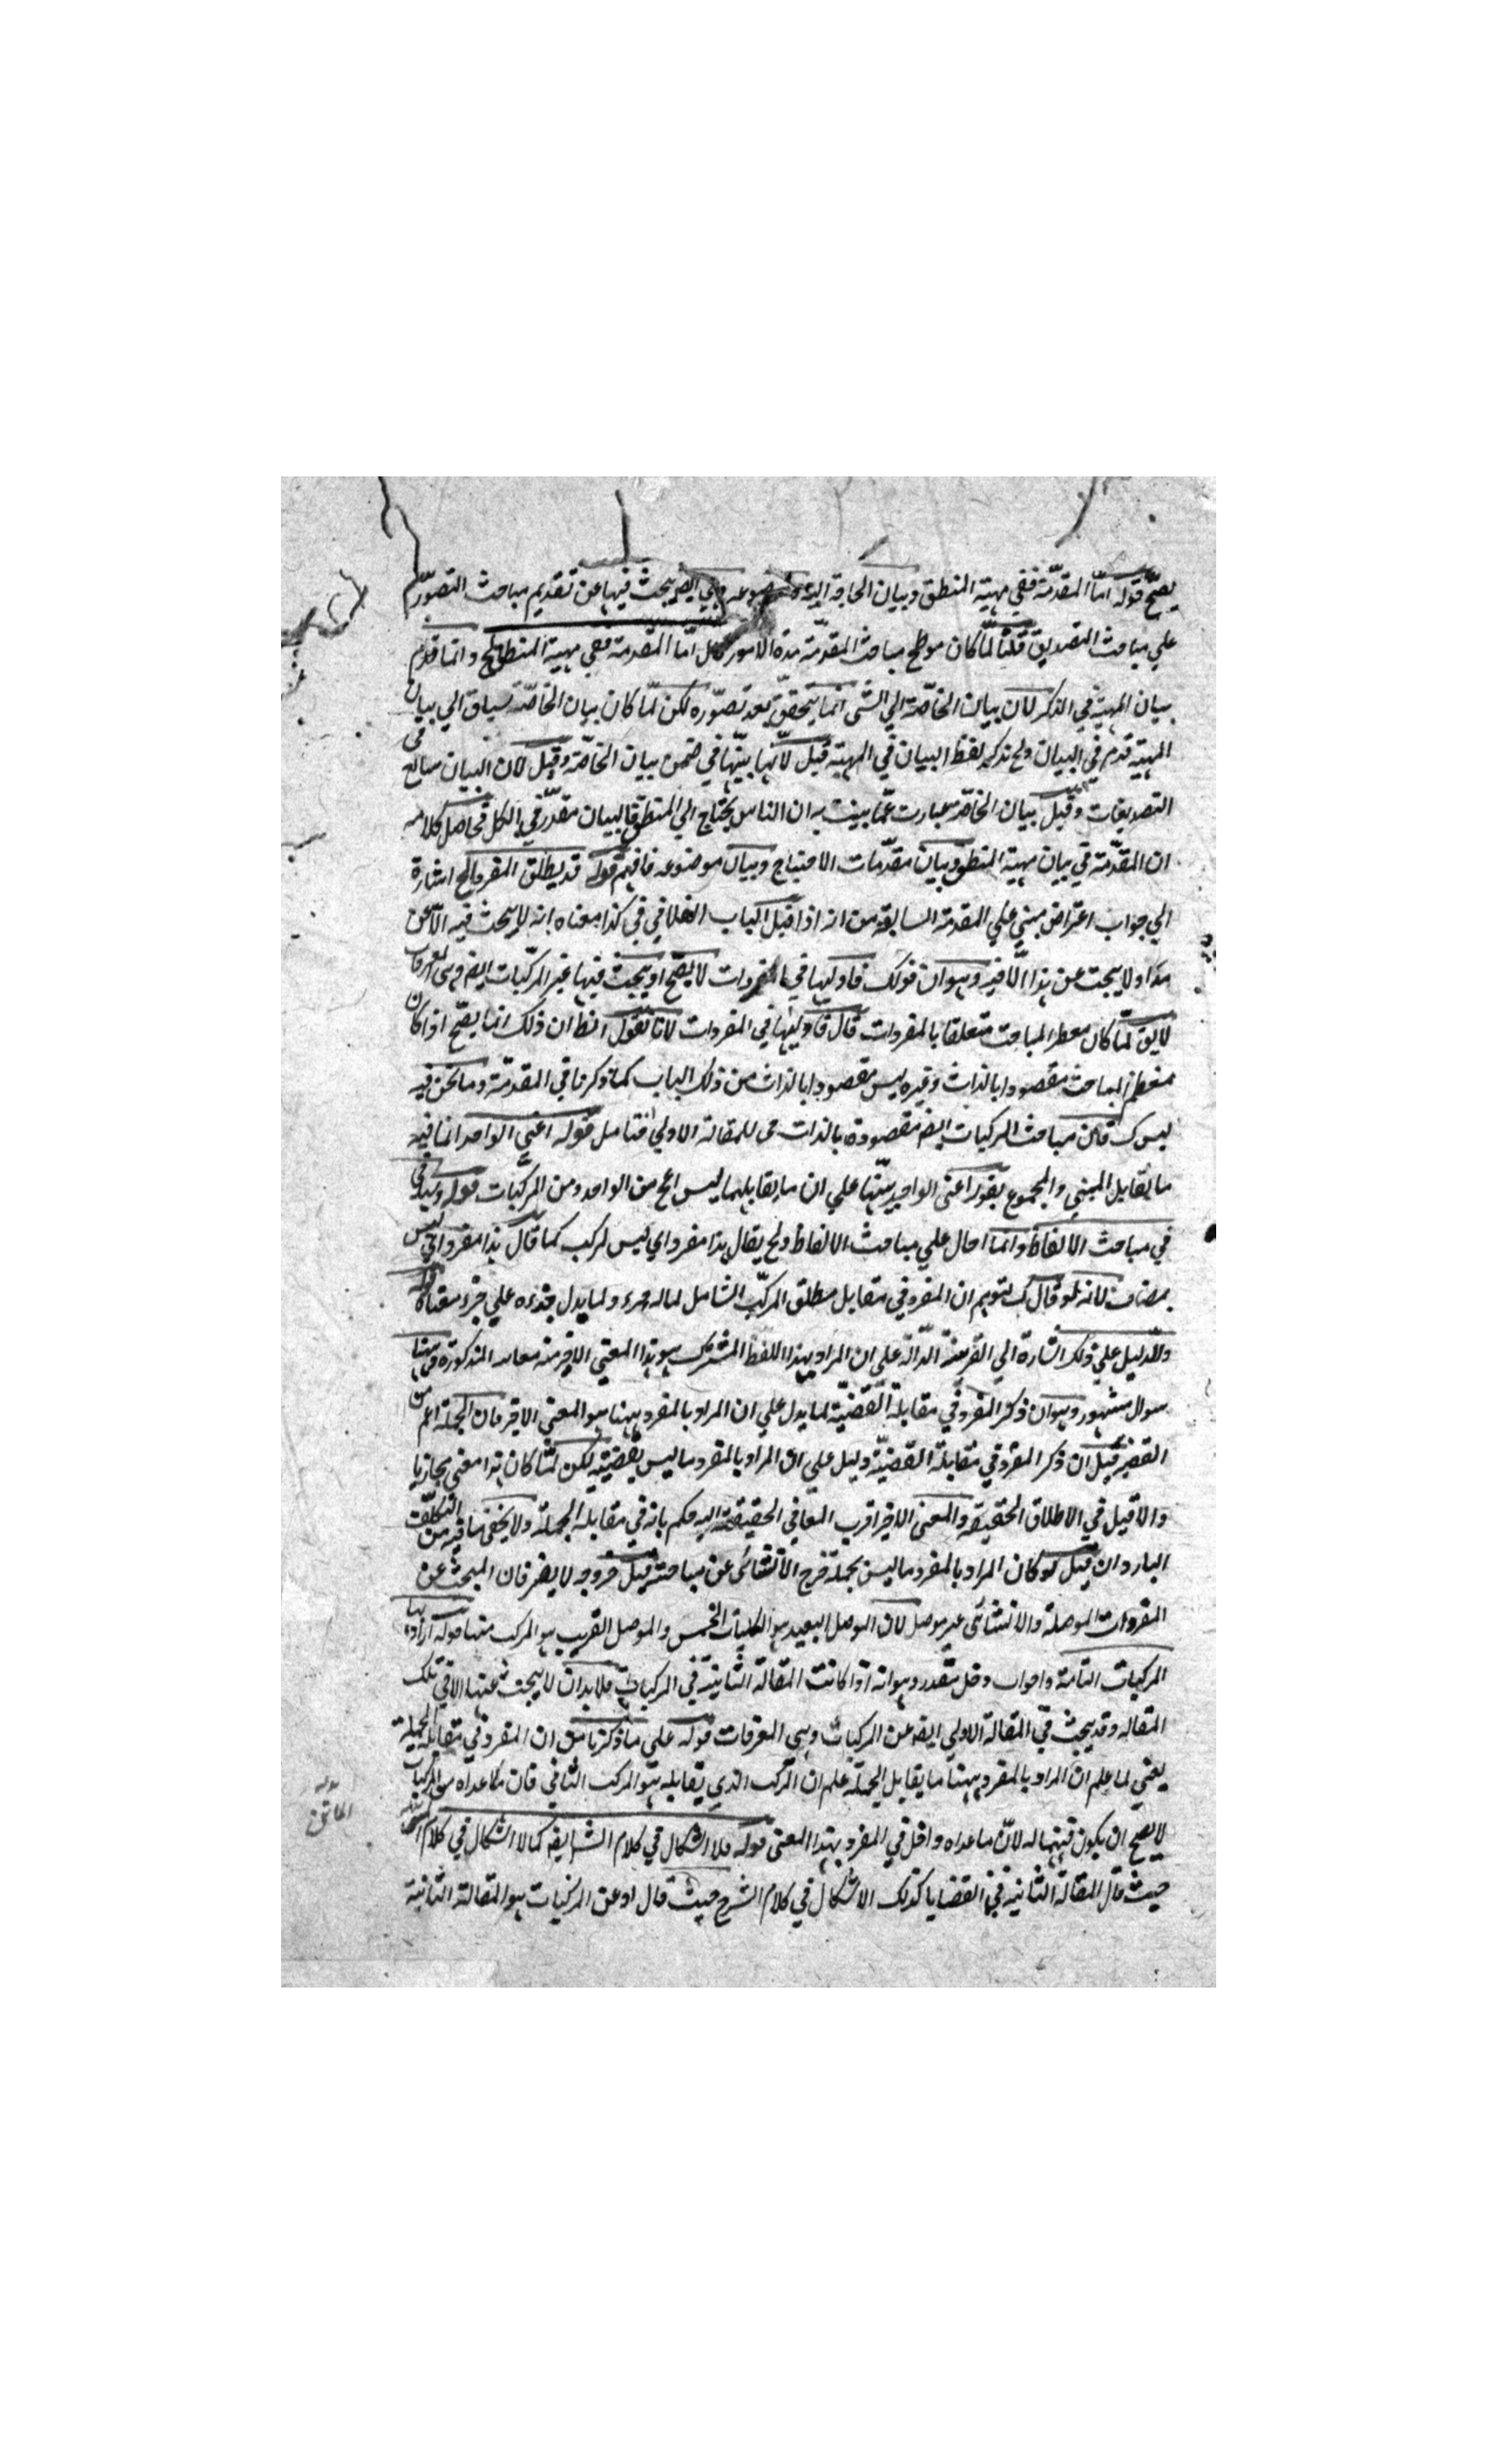 يصحّ قوله امّا المقدّمة ففي مهية المنطق وبيان الحاجة اليه وموضوعه وهي ايضا يبحث فيها عن تقديم مباحث التصوّر
علي مباحث التصديق قلنا لمّا كان مباحث المقدّمة هذه الامور قال امّا المقدمة ففي مهية المنطق الخ وانما قدم
بيان المهية في الذكر لان بيان الحاجة الي الشي انما يتحقق بعد تصوّره لكن لمّا كان بيان الحاجة سياق الي بيان
المهية قدم في البيان ولم يذكر لفظ البيان في المهية قيل لانّها بيّنها في ضمن بيان الحاجة وقيل لان البيان شائع في
التصديقات وقيل بيان الحاجة عبارت عمّا بينت به ان الناس يحتاج الي المنطق فالبيان مقدّر في الكل فحاصل كلامه
ان المقدّمة في بيان مهية المنطق وبيان مقدّمات الاحتياج وبيان موضوعه فافهم قوله قد يطلق المفرد الخ اشارة
الي جواب اعتراض مبني علي المقدمة السابقة من انه اذا قيل الباب الفلاني في كذا معناه انه لا يبحث فيه الّا عن
هذا ولا يبحث عن هذا الّا فيه وهو ان قولك فاوليها في المفردات لا يصح اذ يبحث فيها عن المركّبات ايضا وهي المعرفات
لا يق لمّا كان معظم المباحث متعلقا بالمفردات قال فاوليها في المفردات لانا نقول ان ذلك انما يصحّ اذا كان
معظم المباحث مقصودا بالذات وغيره ليس مقصودا بالذات من ذلك الباب كما ذكرنا في المقدّمة وما نحن فيه
ليس ك فان مباحث المركبات ايضا مقصودة بالذات في المقالة الاولي فتامل قوله اعني الواحد انما فيه
ما يقابل المثني والمجموع بقوله اعني الواحد تنبيها علي ان ما يقابلهما ليس اعم من الواحد ومن المركّبات قوله وسياتي
في مباحث الالفاظ وانما احال علي مباحث الالفاظ ولم يقال هذا مفرد اي ليس لمركب كما قال هذا مفرد اي ليس
بمضاف لانه لو قال ك لتوهم ان المفرد في مقابل مطلق المركّب الشامل لماله جزء ولما يدل جزءه علي جزء معناه قوله
والدليل علي ذلك اشارة الي القرينة الدّالة علي ان المراد بهذا اللفظ المشترك هو هذا المعني الاخير من معانيه المذكورة وهٰهنا
سوال مشهور وهو ان ذكر المفرد في مقابلة القضيّة لما يدل علي ان المراد بالمفرد ههنا هو المعني الاخير فان الجملة اعم من
القضية قيل ان ذكر المفرد في مقابلة القضيّة دليل علي ان المراد بالمفرد ما ليس بقضية لكن لمّا كان هذا معني مجازيا
والاقيل في الاطلاق الحقيقة والمعني الاخير اقرب المعاني الحقيقة اليه حكم بانه في مقابلة الجملة ولا يخفي ما فيه من التكلّف
البارد وان قيل لو كان المراد بالمفرد ما ليس بجملة خرج الانشائي عن مباحثه قيل خروجه لا يضر فان المبحث عن
المفردات الموصلة والانشائي غير موصل لان الموصل البعيد هو الكليات الخمس والموصل القريب هو المركب منها قوله اراد بها
المركبات التامة وجواب دخل مقدر وهو انه اذا كانت المقالة الثانية في المركبات فلا بد ان لا يبحث عنها الا في تلك
المقاله وقد يبحث في المقالة الاولي ايضا عن المركبات وهي المعرفات قوله علي ما ذكرنا من ان المفرد في مقابله الجملة
يعني لما علم ان المراد بالمفرد ههنا ما يقابل الجملة علم ان المركب الذي يقابله هو المركب التام فان ما عداه من المركبات
لا يصح ان يكون قسيما له لانّ ما عداه داخل في المفرد بهذا المعني قوله فلا اشكال في كلام الشارح ايضا كما لا اشكال في كلام
حيث قال المقالة الثانية في القضايا كذلك الاشكال في كلام الشرح حيث قال او عن المركبات هو المقالة الثانية